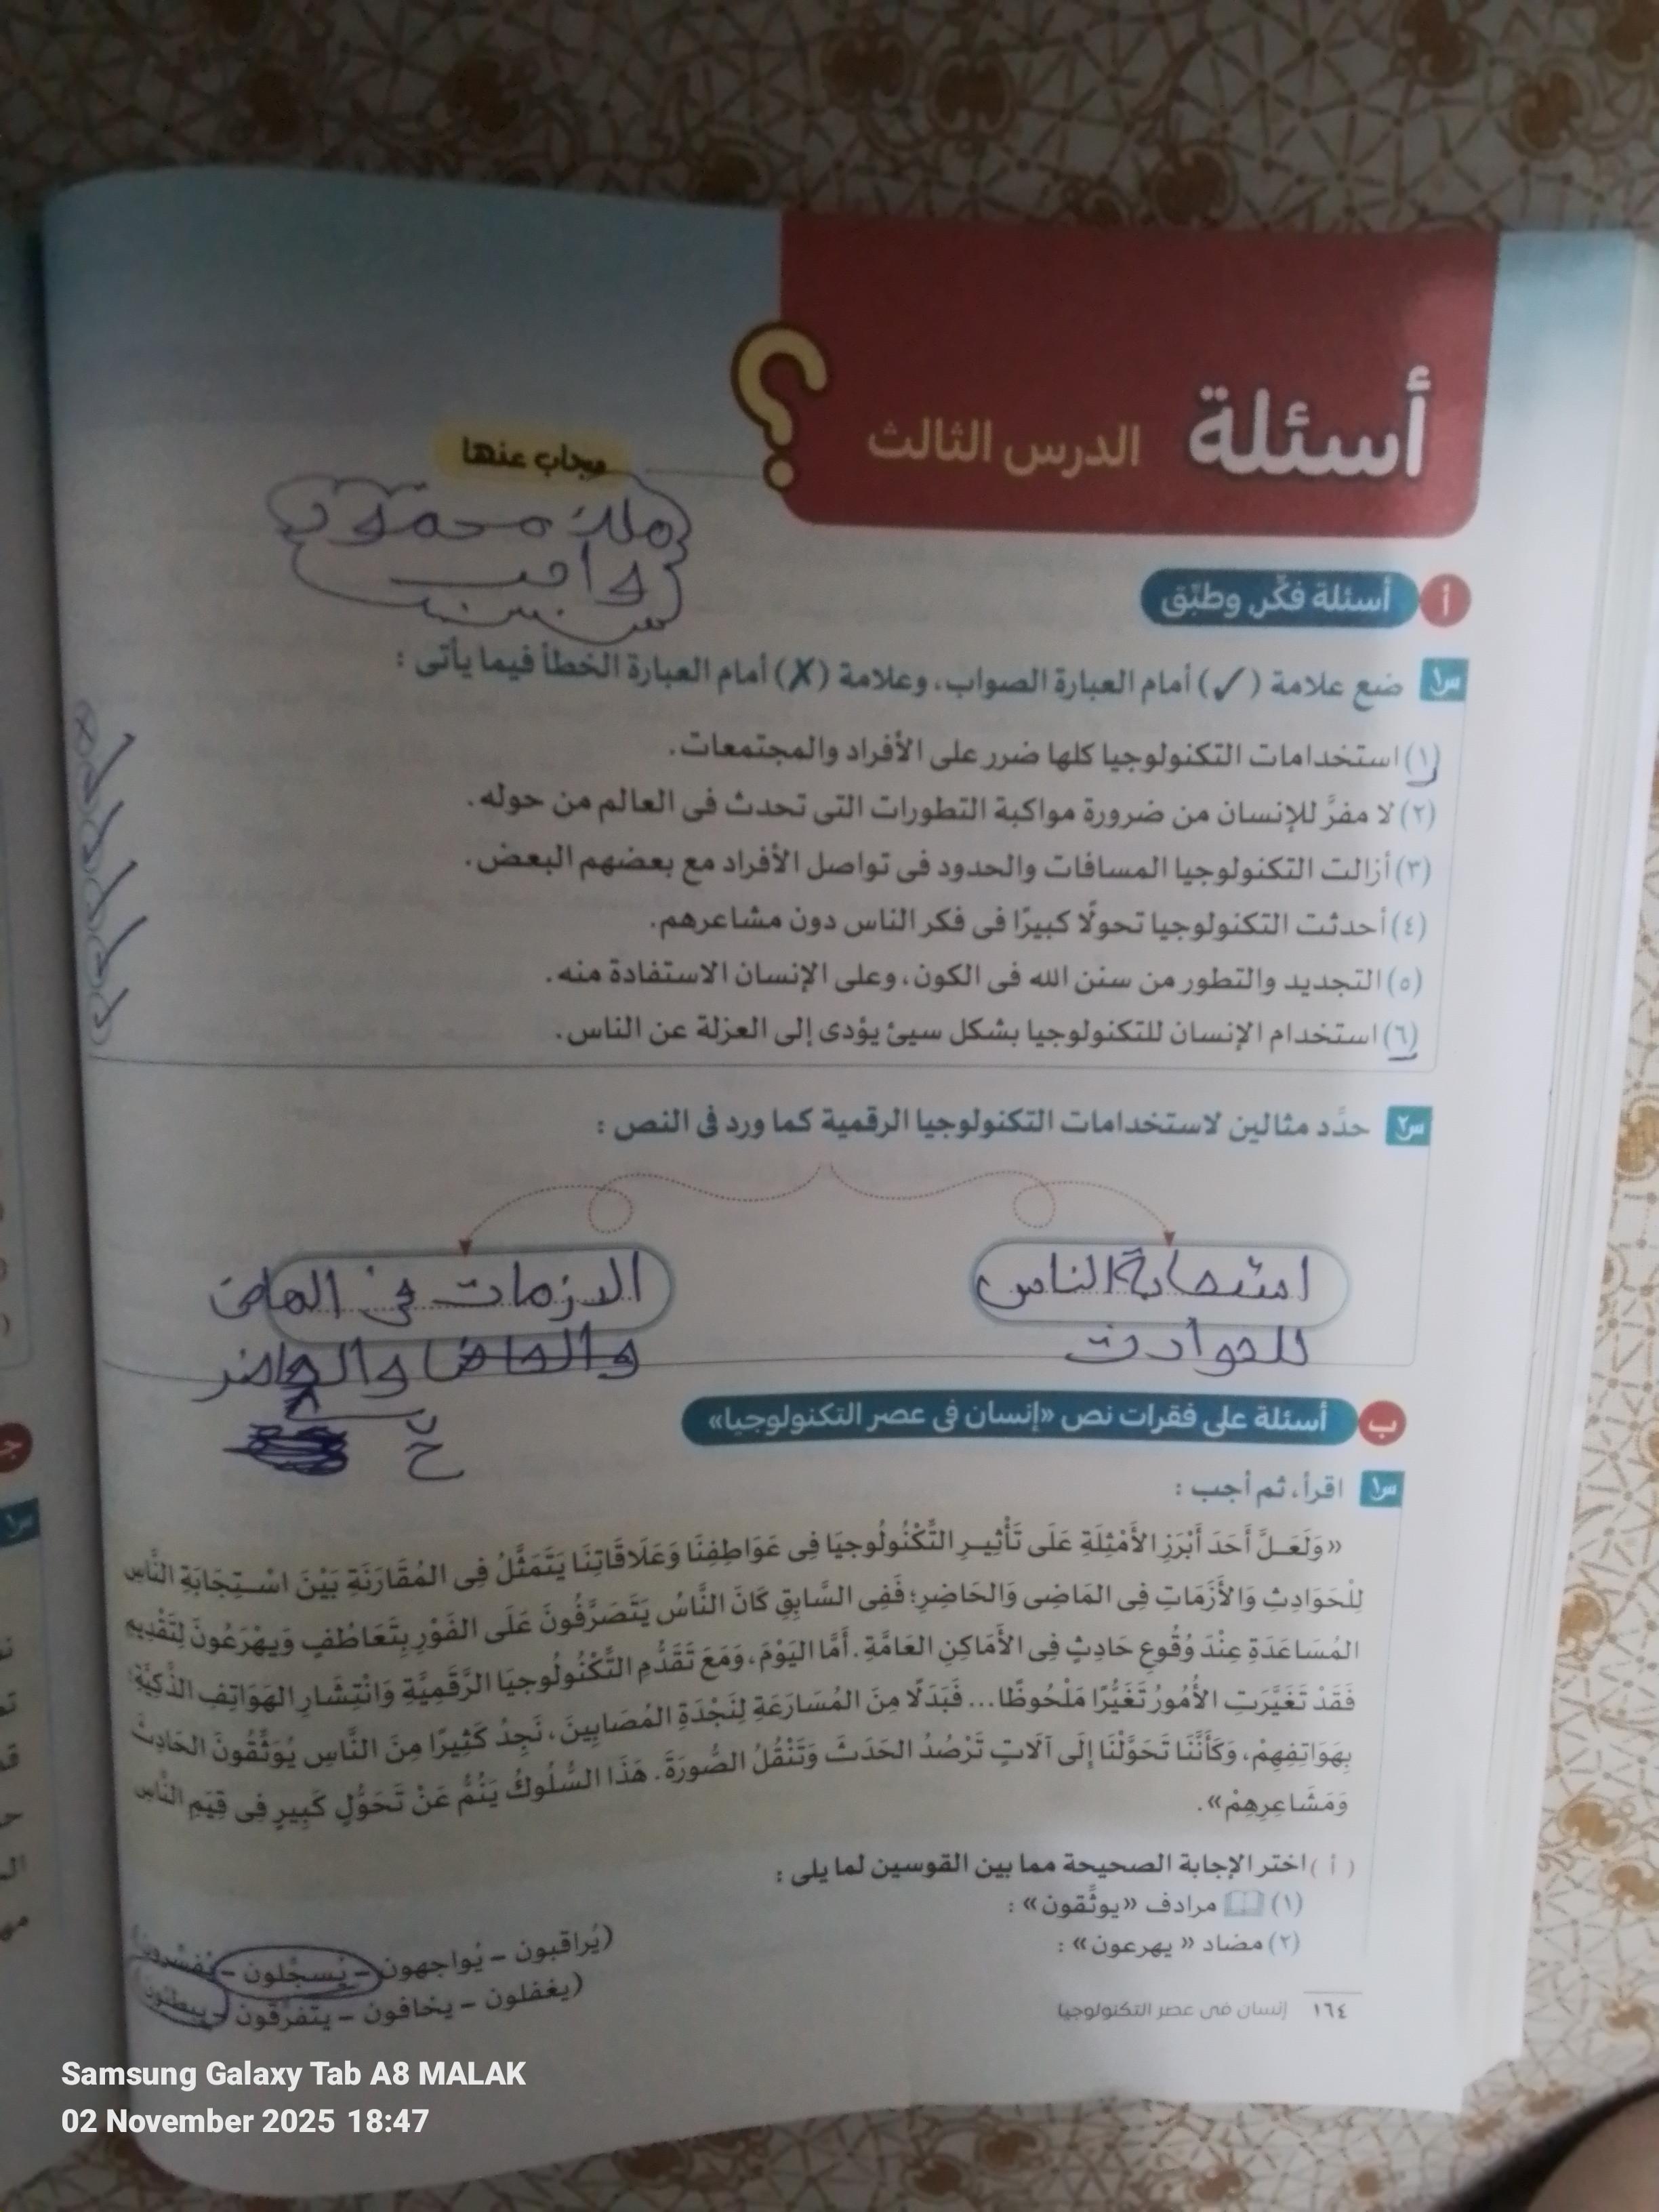 أسئلة الدرس الثالث
مجاب عنها
ملك محمود
أ أسئلة فكِّر وطبِّق
س١ ضع علامة (✓) أمام العبارة الصواب، وعلامة (✗) أمام العبارة الخطأ فيما يأتى :
(١) استخدامات التكنولوجيا كلها ضرر على الأفراد والمجتمعات.
(٢) لا مفرَّ للإنسان من ضرورة مواكبة التطورات التى تحدث فى العالم من حوله.
(٣) أزالت التكنولوجيا المسافات والحدود فى تواصل الأفراد مع بعضهم البعض.
(٤) أحدثت التكنولوجيا تحولًا كبيرًا فى فكر الناس دون مشاعرهم.
(٥) التجديد والتطور من سنن الله فى الكون، وعلى الإنسان الاستفادة منه.
(٦) استخدام الإنسان للتكنولوجيا بشكل سيئ يؤدى إلى العزلة عن الناس.
س٢ حدَّد مثالين لاستخدامات التكنولوجيا الرقمية كما ورد فى النص :
استجابة الناس
للحوادث
الازمات في الماضى
والحاضر
ب أسئلة على فقرات نص «إنسان فى عصر التكنولوجيا»
س١ اقرأ، ثم أجب :
«وَلَعَـلَّ أَحَدَ أَبْرَزِ الأَمْثِلَةِ عَلَى تَأْثِيـرِ التِّكْنُولُوجيَا فِى عَوَاطِفِنَا وَعَلَاقَاتِنَا يَتَمَثَّلُ فِى المُقَارَنَةِ بَيْنَ اسْـتِجَابَةِ النَّاسِ
لِلْحَوَادِثِ وَالأَزَمَاتِ فِى المَاضِى وَالحَاضِرِ؛ فَفِى السَّابِقِ كَانَ النَّاسُ يَتَصَرَّفُونَ عَلَى الفَوْرِ بِتَعَاطُفٍ وَيهْرَعُونَ لِتَقْدِيمِ
المُسَاعَدَةِ عِنْدَ وُقُوعِ حَادِثٍ فِى الأَمَاكِنِ العَامَّةِ. أَمَّا اليَوْمَ، وَمَعَ تَقَدُّمِ التِّكْنُولُوجيَا الرَّقَمِيَّةِ وَانْتِشَارِ الهَوَاتِفِ الذَّكِيَّةِ
فَقَدْ تَغَيَّرَتِ الأُمُورُ تَغَيُّرًا مَلْحُوظًا... فَبَدَلًا مِنَ المُسَارَعَةِ لِنَجْدَةِ المُصَابِينَ، نَجِدُ كَثِيرًا مِنَ النَّاسِ يُوَثِّقُونَ الحَادِثَ
بِهَوَاتِفِهِمْ، وَكَأَنَّنَا تَحَوَّلْنَا إِلَى آلَاتٍ تَرْصُدُ الحَدَثَ وَتَنْقُلُ الصُّورَةَ. هَذَا السُّلُوكُ يَنُمُّ عَنْ تَحَوُّلٍ كَبِيرٍ فِى قِيَمِ النَّاسِ
وَمَشَاعِرِهِمْ».
( أ ) اختر الإجابة الصحيحة مما بين القوسين لما يلى :
(١) مرادف «يوثِّقون» : (يُراقبون – يُواجهون – يُسجِّلون –
(٢) مضاد « يهرعون» : (يغفلون – يخافون – يتفرَّقون – يبطئون)
١٦٤ إنسان فى عصر التكنولوجيا
Samsung Galaxy Tab A8 MALAK
02 November 2025 18:47